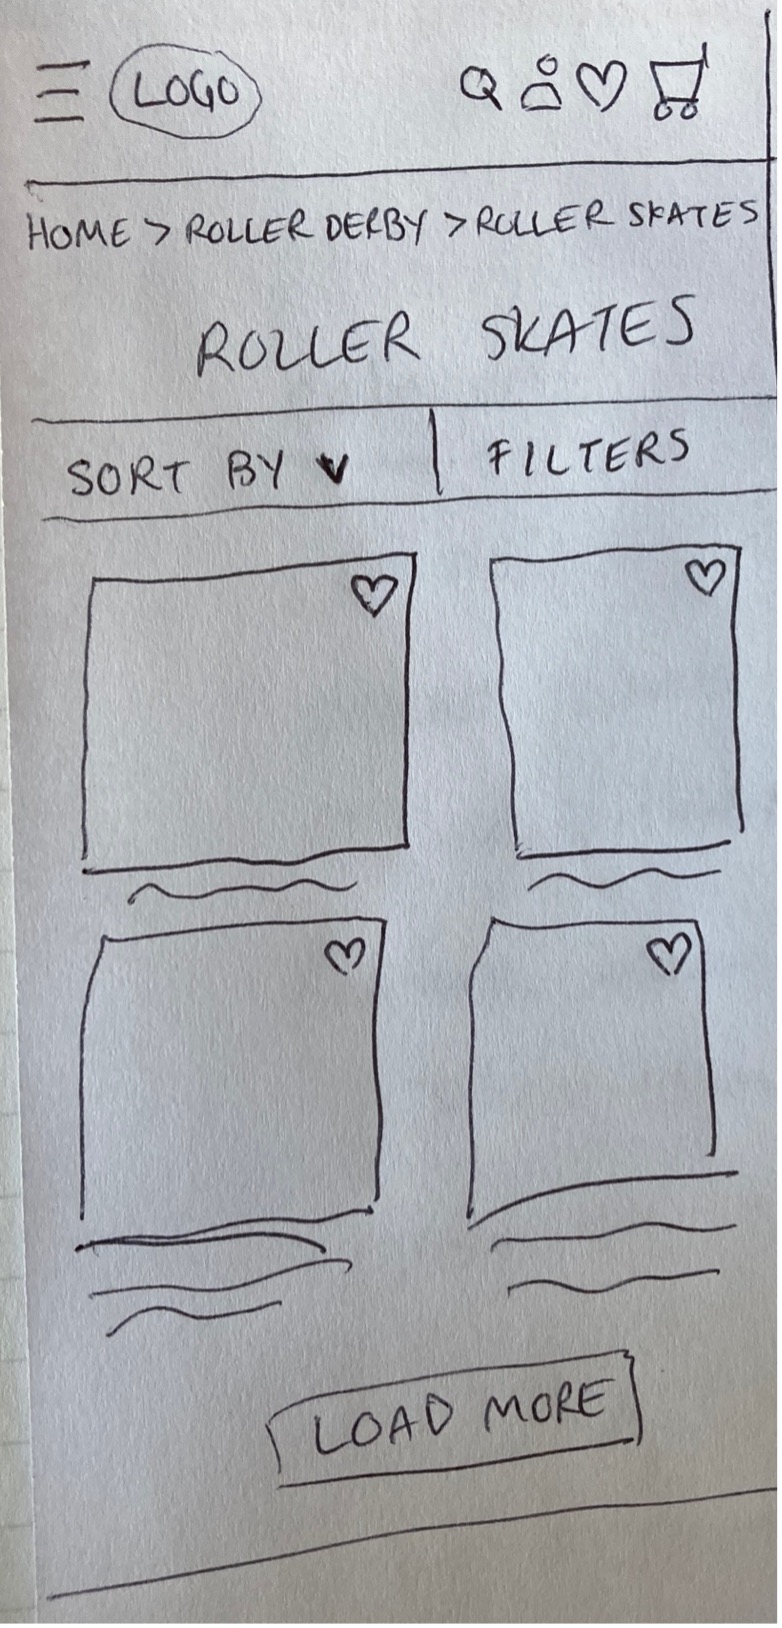 LOGO
HOME > ROLLER DERBY > ROLLER SKATES
ROLLER SKATES
SORT BY
FILTERS
LOAD MORE